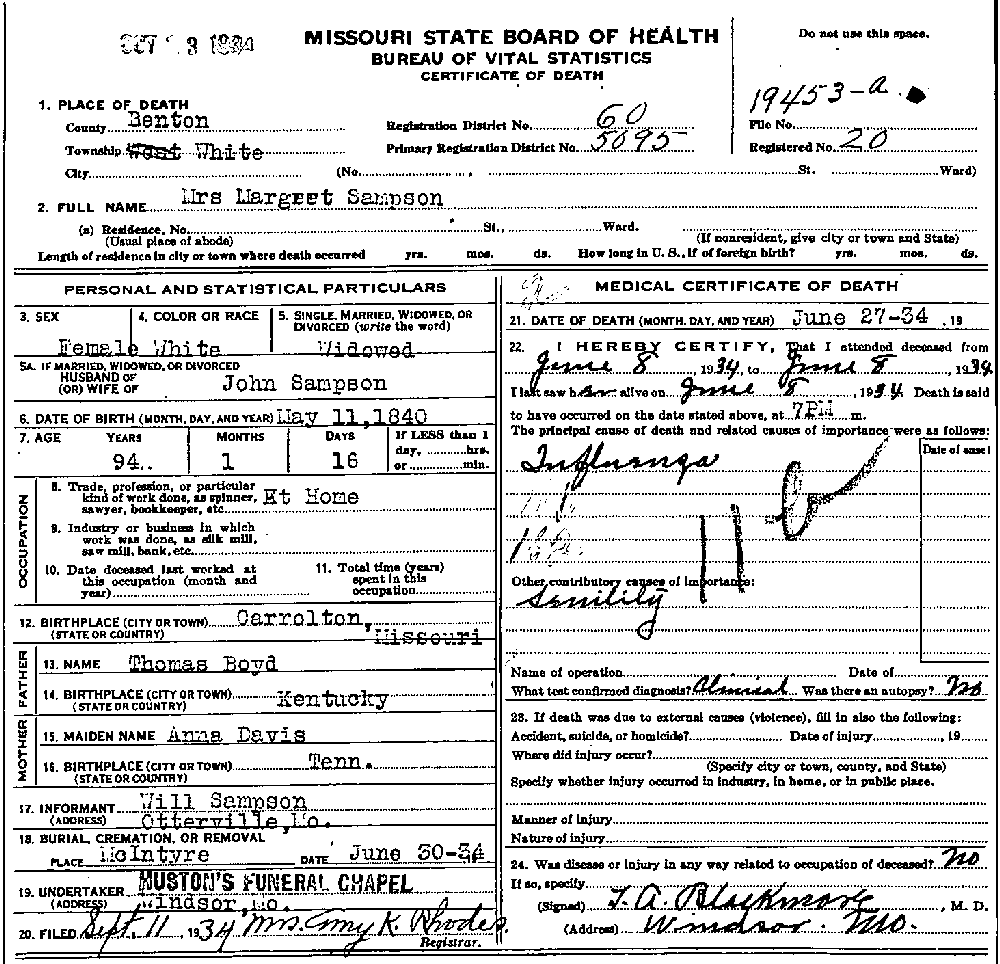 OCT 13 1934
MISSOURI STATE BOARD OF HEALTH
BUREAU OF VITAL STATISTICS
CERTIFICATE OF DEATH
Do not use this space.
19453-a
1. PLACE OF DEATH
County Benton
Registration District No. 60
File No.
Township West White
Primary Registration District No. 5095
Registered No. 20
City (No. , St. Ward)
2. FULL NAME Mrs Margret Sampson
(a) Residence, No. St., Ward.
(Usual place of abode) (If nonresident, give city or town and State)
Length of residence in city or town where death occurred yrs. mos. ds. How long in U. S., if of foreign birth? yrs. mos. ds.
PERSONAL AND STATISTICAL PARTICULARS
3. SEX 4. COLOR OR RACE 5. SINGLE, MARRIED, WIDOWED, OR
DIVORCED (write the word)
Female White Widowed
5A. IF MARRIED, WIDOWED, OR DIVORCED
HUSBAND OF
(OR) WIFE OF John Sampson
6. DATE OF BIRTH (MONTH, DAY, AND YEAR) May 11,1840
7. AGE YEARS MONTHS DAYS If LESS than 1
day, hrs.
94. 1 16 or min.
OCCUPATION
8. Trade, profession, or particular
kind of work done, as spinner, At Home
sawyer, bookkeeper, etc.
9. Industry or business in which
work was done, as silk mill,
saw mill, bank, etc.
10. Date deceased last worked at 11. Total time (years)
this occupation (month and spent in this
year) occupation
12. BIRTHPLACE (CITY OR TOWN) Carrolton,
(STATE OR COUNTRY) Missouri
FATHER
13. NAME Thomas Boyd
14. BIRTHPLACE (CITY OR TOWN) Kentucky
(STATE OR COUNTRY)
MOTHER
15. MAIDEN NAME Anna Davis
16. BIRTHPLACE (CITY OR TOWN) Tenn.
(STATE OR COUNTRY)
17. INFORMANT Will Sampson
(ADDRESS) Otterville,Mo.
18. BURIAL, CREMATION, OR REMOVAL
PLACE McIntyre DATE June 30-34
19. UNDERTAKER HUSTON'S FUNERAL CHAPEL
(ADDRESS) Windsor,Mo.
20. FILED Sept. 11, 1934 Mrs. Amy K. Rhodes.
Registrar.
MEDICAL CERTIFICATE OF DEATH
21. DATE OF DEATH (MONTH, DAY, AND YEAR) June 27-34 , 19
22. I HEREBY CERTIFY, That I attended deceased from
June 8 , 1934, to June 8 , 1934
I last saw her alive on June 8 , 1934. Death is said
to have occurred on the date stated above, at 7PM m.
The principal cause of death and related causes of importance were as follows:
Date of onset
Influenza
11 b
Other contributory causes of importance:
Senility
Name of operation Date of
What test confirmed diagnosis? Clinical Was there an autopsy? No
23. If death was due to external causes (violence), fill in also the following:
Accident, suicide, or homicide? Date of injury , 19
Where did injury occur?
(Specify city or town, county, and State)
Specify whether injury occurred in industry, in home, or in public place.
Manner of injury
Nature of injury
24. Was disease or injury in any way related to occupation of deceased? No
If so, specify
(Signed) T. A. Blackmore , M. D.
(Address) Windsor. Mo.